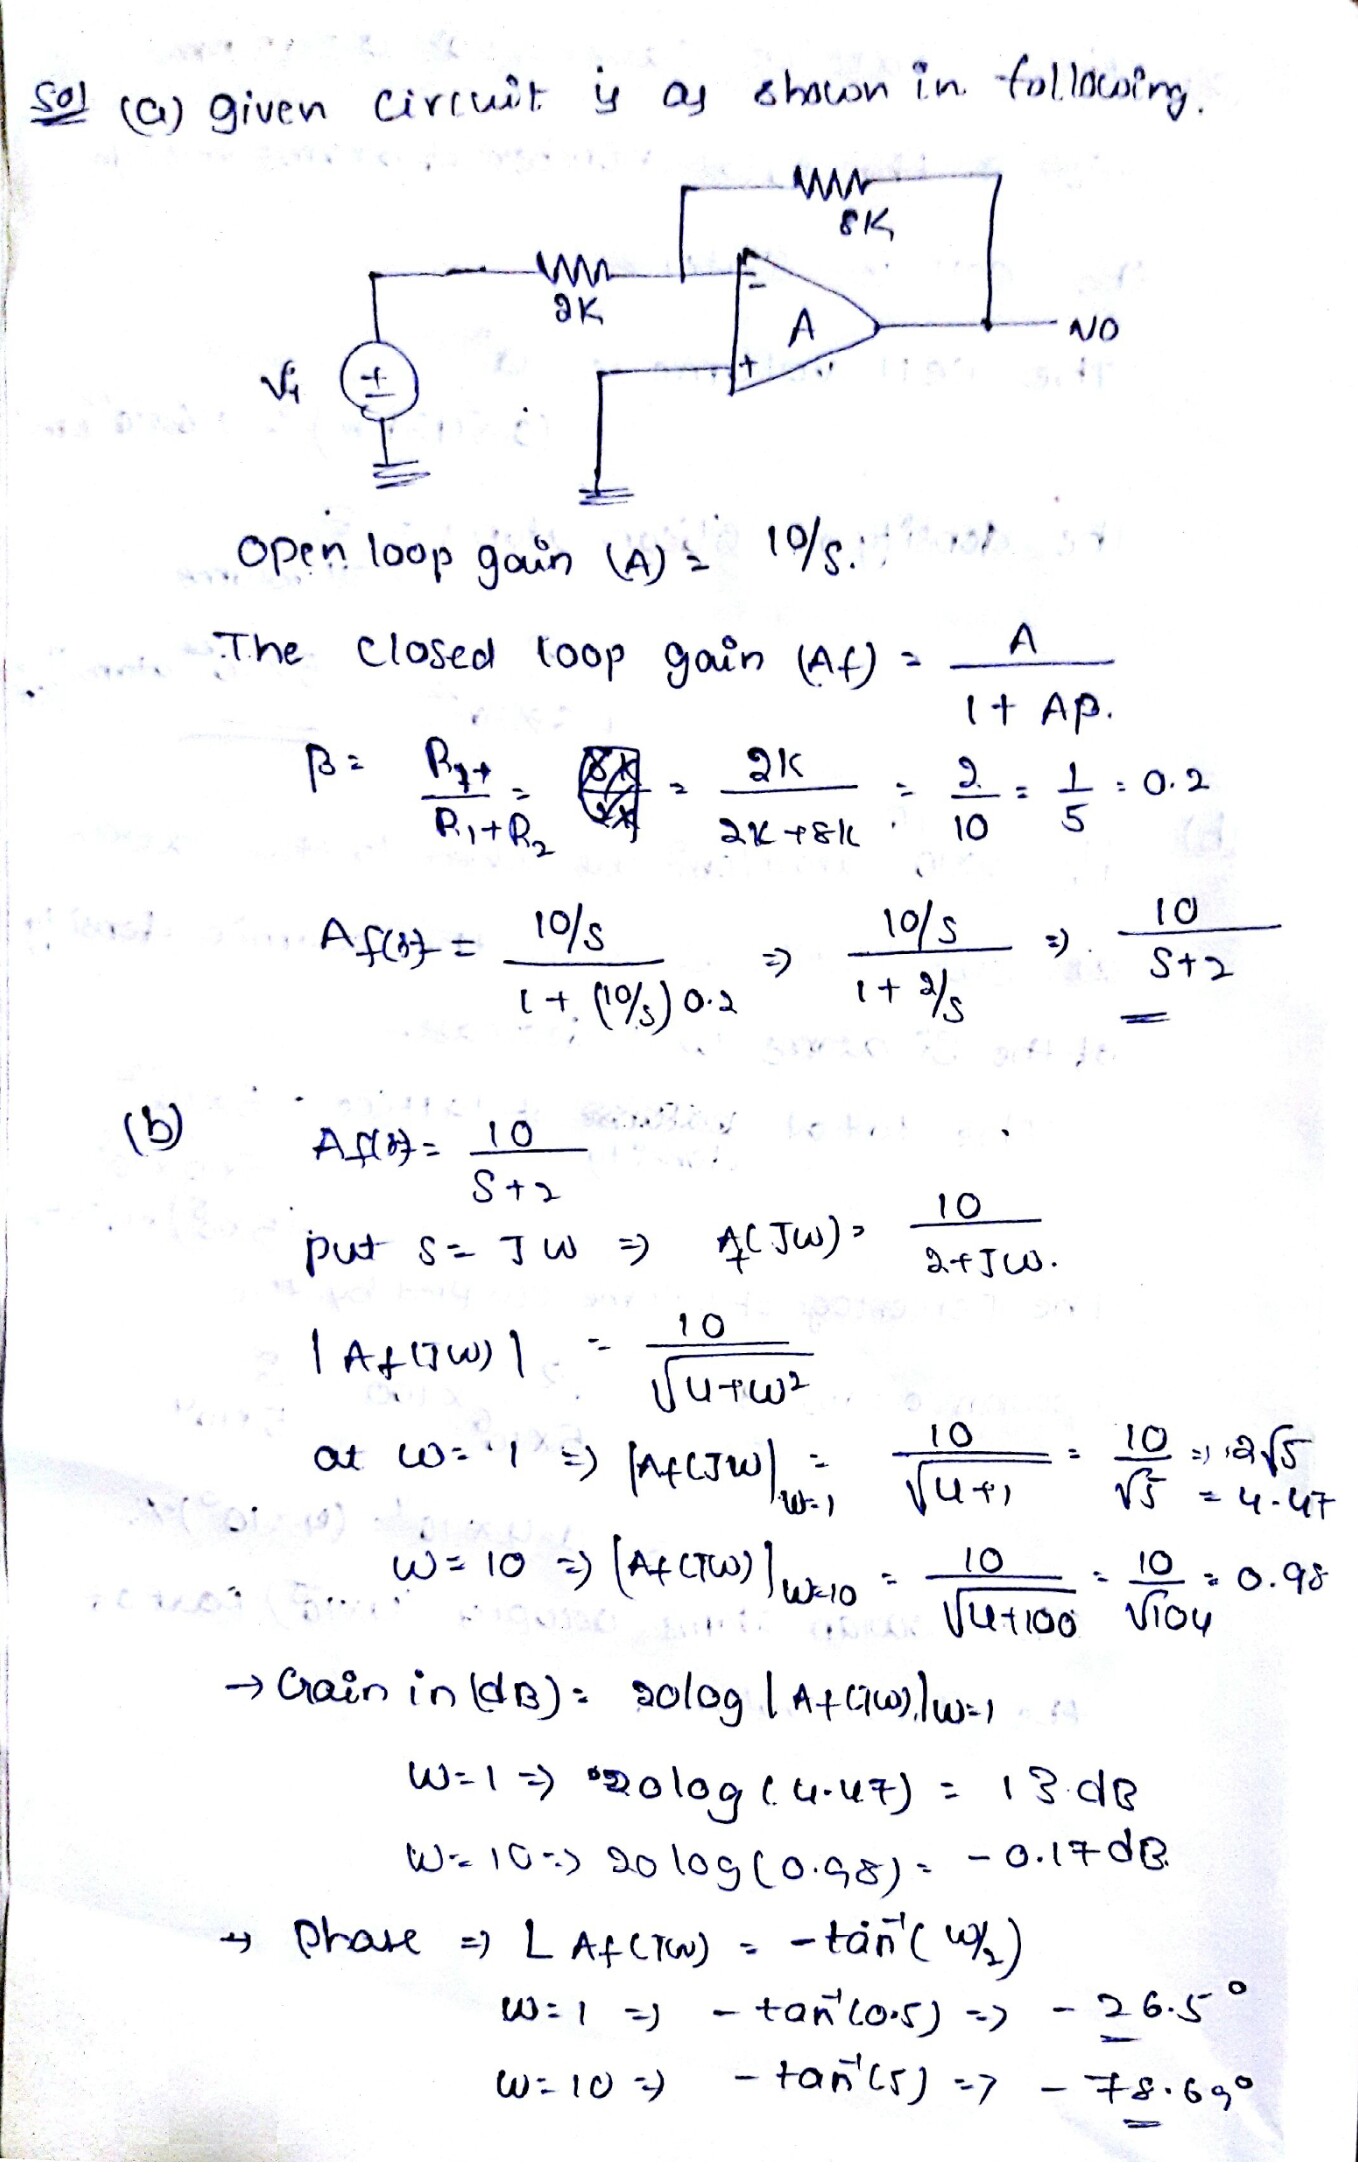 Sol (a) given circuit is as shown in following.
8K
2K
A
Vi
+
-
-
+
VO
Open loop gain (A) = 10/s.
The closed loop gain (Af) = A / 1 + Aβ.
β = R1 / R1+R2 = = 2K / 2K+8K = 2/10 = 1/5 = 0.2
Af(s) = 10/s / 1 + (10/s) 0.2 => 10/s / 1 + 2/s => 10 / S+2
(b) Af(s) = 10 / S+2
put s = Jω => Af(Jω) = 10 / 2+Jω.
|Af(Jω)| = 10 / √4+ω²
at ω = 1 => |Af(Jω)|ω=1 = 10 / √4+1 = 10/√5 => 2√5 = 4.47
ω = 10 => |Af(Jω)|ω=10 = 10 / √4+100 = 10/√104 = 0.98
→ Gain in (dB) = 20log |Af(Jω)|ω=1
ω=1 => 20log (4.47) = 13 dB
ω=10 => 20 log (0.98) = -0.17 dB.
→ Phase => ∠Af(Jω) = -tan⁻¹(ω/2)
ω=1 => -tan⁻¹(0.5) => -26.5°
ω=10 => -tan⁻¹(5) => -78.69°